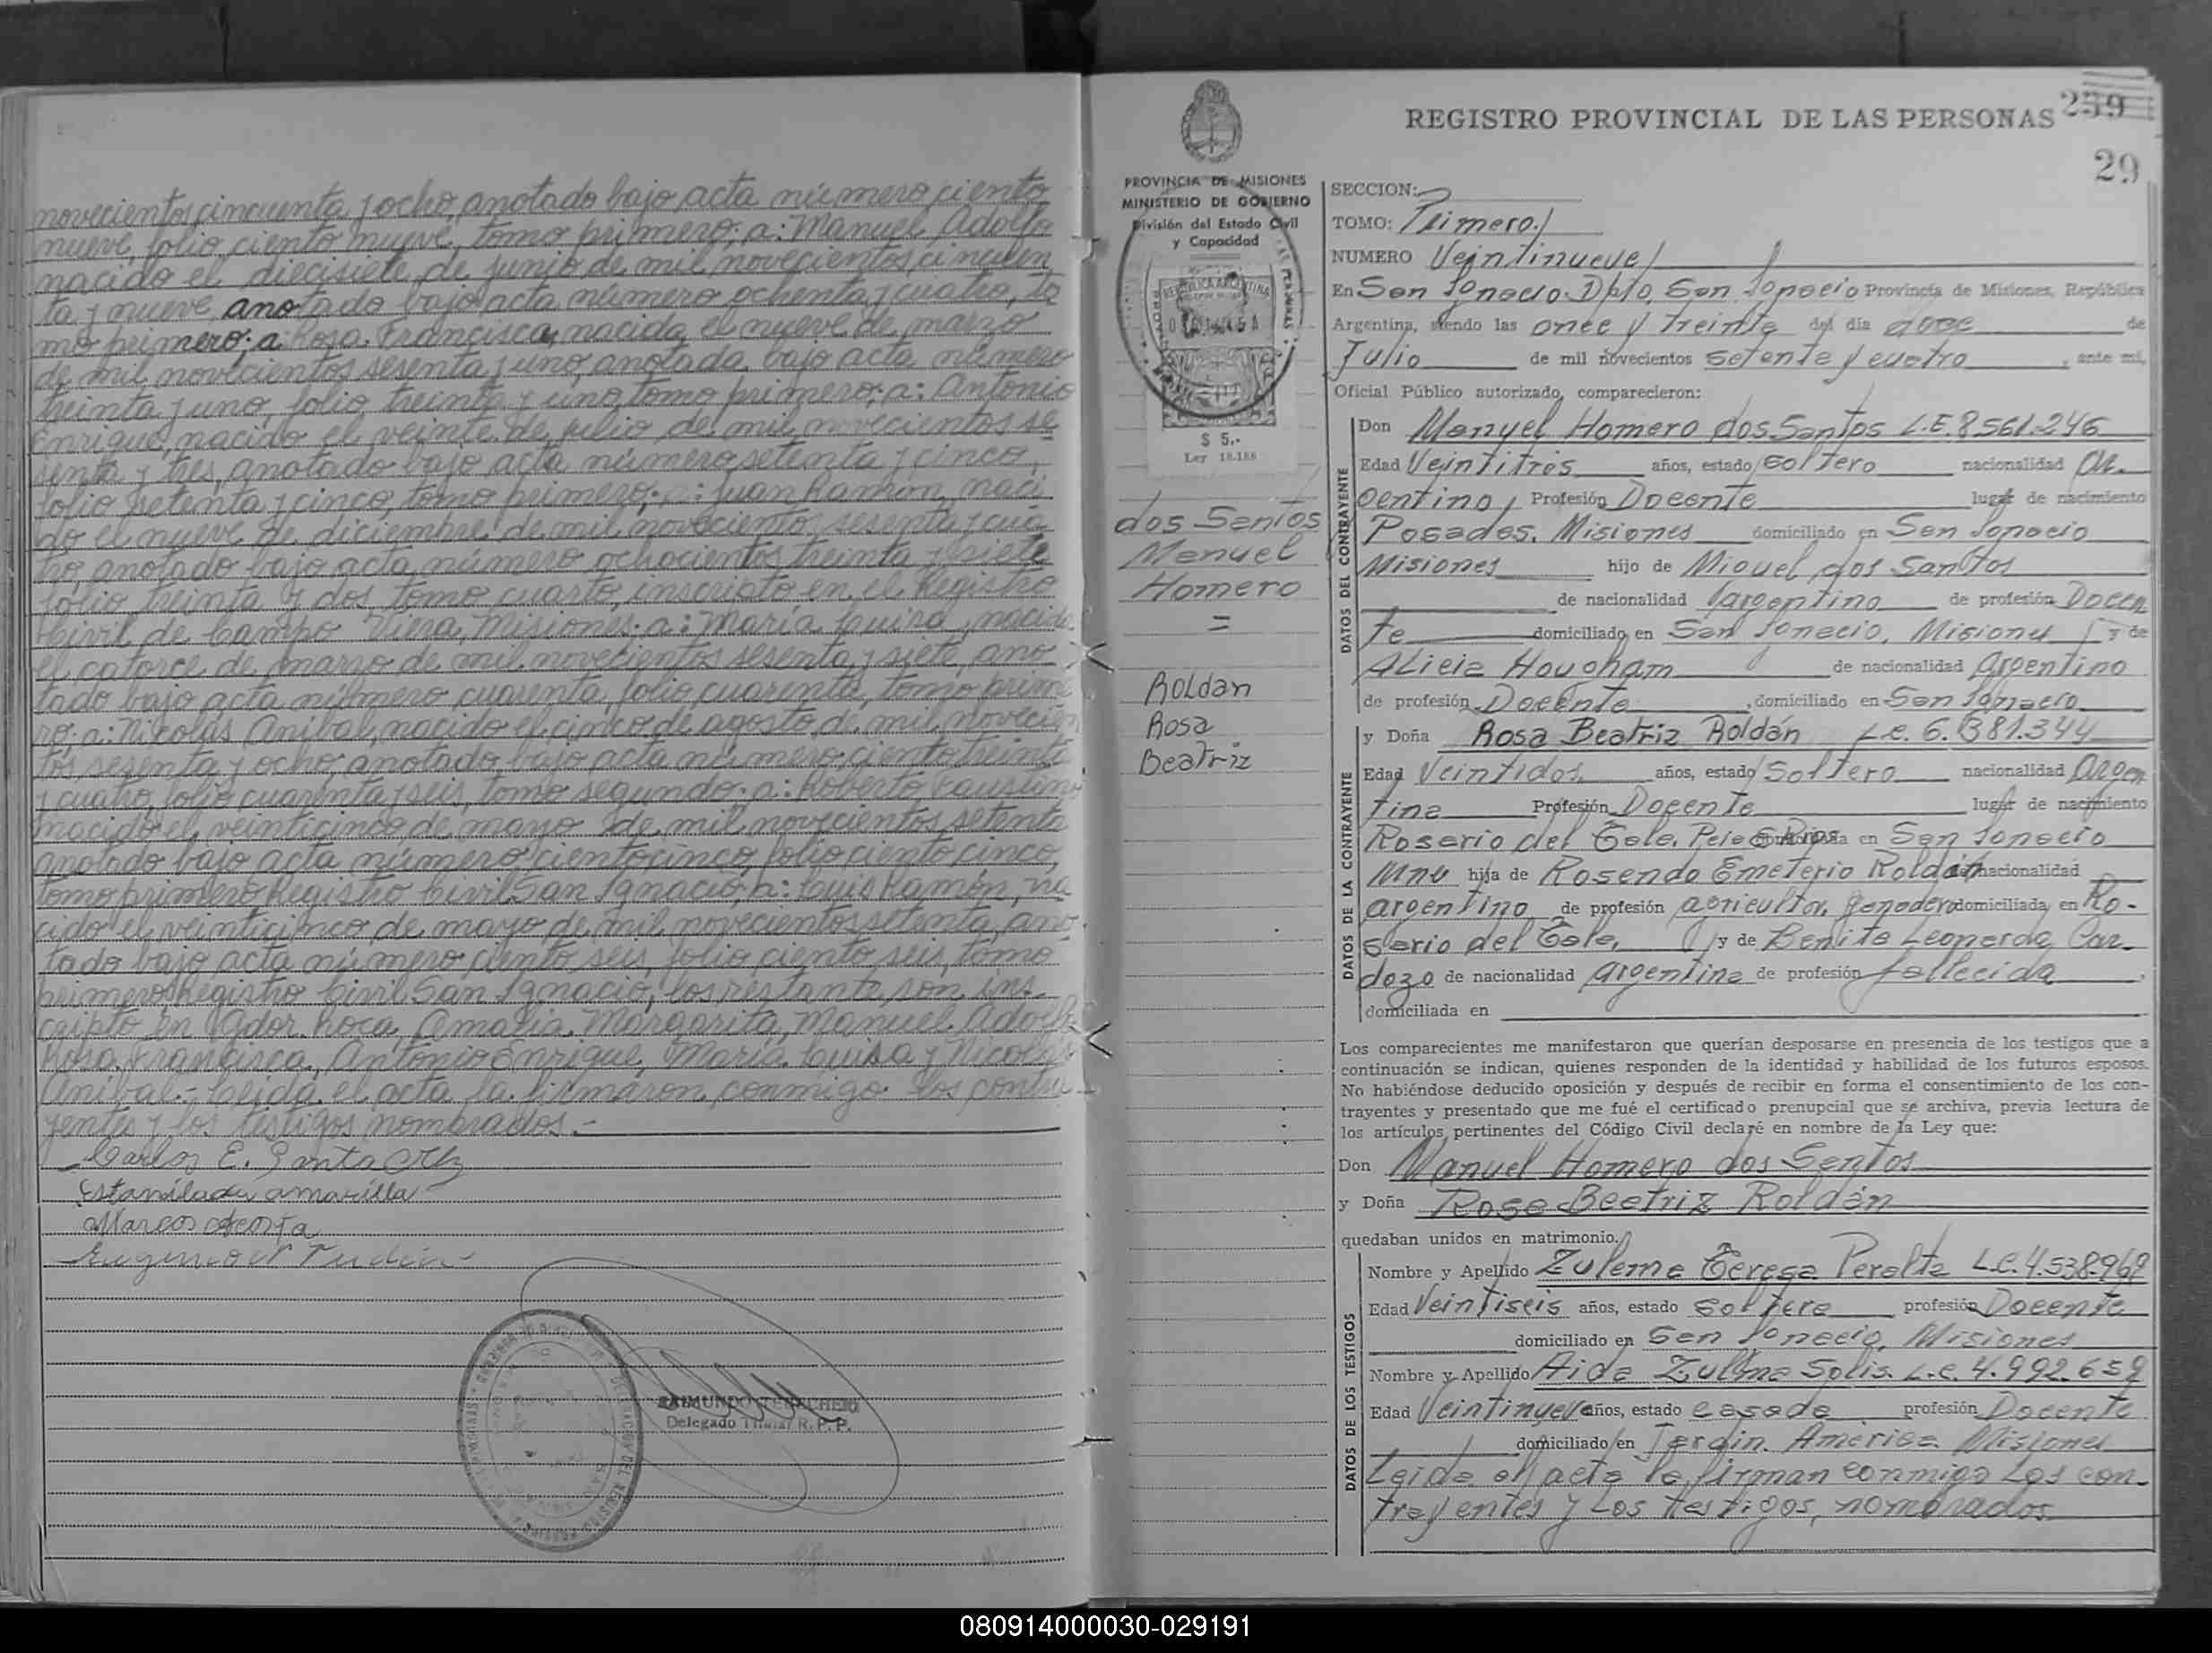 novecientos cincuenta y ocho, anotado bajo acta número ciento
nueve, folio ciento nueve, tomo primero; a: Manuel Adolfo
nacido el diecisiete de junio de mil novecientos cincuen
ta y nueve, anotado bajo acta número ochenta y cuatro, to
mo primero; a Rosa Francisca, nacida el nueve de marzo
de mil novecientos sesenta y uno, anotada bajo acta número
treinta y uno, folio treinta y uno, tomo primero; a: Antonio
Enrique, nacido el veinte de julio de mil novecientos se
senta y tres, anotado bajo acta número setenta y cinco,
folio setenta y cinco, tomo primero; a: Juan Ramón, naci
do el nueve de diciembre de mil novecientos sesenta y cua
tro, anotado bajo acta número ochocientos treinta y siete
folio treinta y dos, tomo cuarto, inscripto en el Registro
Civil de Campo Viera, Misiones; a: María Luisa, nacida
el catorce de marzo de mil novecientos sesenta y siete, ano
tado bajo acta número cuarenta, folio cuarenta, tomo prime
ro; a: Nicolás Aníbal, nacido el cinco de agosto de mil novecien
tos sesenta y ocho, anotado bajo acta número ciento treinta
y cuatro, folio cuarenta y seis, tomo segundo; a: Roberto Faustino
nacido el veinticinco de mayo de mil novecientos setenta
anotado bajo acta número ciento cinco, folio ciento cinco,
tomo primero Registro Civil San Ignacio, a: Luis Ramón, na
cido el veinticinco de mayo de mil novecientos setenta, ano
tado bajo acta número ciento seis, folio ciento seis, tomo
primero Registro Civil San Ignacio, los restante son ins
cripto en Gdor. Roca, Amalia Margarita, Manuel Adolfo
Rosa Francisca, Antonio Enrique, María Luisa y Nicolás
Aníbal.- Leida el acta la firmaron conmigo los contra
yentes y los testigos nombrados.-
Carlos E. Santa Cruz
Estanilada amarilla
Marcos Acosta
RAIMUNDO
Delegado Titular R. P. P.
REGISTRO PROVINCIAL DE LAS PERSONAS 259
29
PROVINCIA DE MISIONES
MINISTERIO DE GOBIERNO
División del Estado Civil
y Capacidad
REPUBLICA ARGENTINA
$ 5.-
Ley 18.188
dos Santos
Manuel
Homero
=
Roldan
Rosa
Beatriz
SECCION:
TOMO: Primero
NUMERO Veintinueve
En San Ignacio Dpto. San Ignacio Provincia de Misiones, República
Argentina, siendo las once y treinta del día doce de
Julio de mil novecientos setenta y cuatro, ante mí,
Oficial Público autorizado, comparecieron:
DATOS DEL CONTRAYENTE
Don Manuel Homero dos Santos L.E. 8561.246
Edad Veintitrés años, estado soltero nacionalidad Ar-
gentino Profesión Docente lugar de nacimiento
Posadas. Misiones domiciliado en San Ignacio
Misiones hijo de Miguel dos Santos
de nacionalidad argentino de profesión Docen
te domiciliado en San Ignacio, Misiones y de
Alicia Hougham de nacionalidad Argentino
de profesión Docente, domiciliado en San Ignacio
DATOS DE LA CONTRAYENTE
y Doña Rosa Beatriz Roldán L.C. 6.381.344
Edad Veintidos años, estado Soltero nacionalidad Argen
tina Profesión Docente lugar de nacimiento
Rosario del Tala, E. Rios domiciliada en San Ignacio
Mns hija de Rosendo Emeterio Roldán de nacionalidad
argentino de profesión agricultor, ganadero domiciliada en Ro-
sario del Tala, y de Benita Leonarda Car-
dozo de nacionalidad argentina de profesión fallecida,
domiciliada en
Los comparecientes me manifestaron que querían desposarse en presencia de los testigos que a
continuación se indican, quienes responden de la identidad y habilidad de los futuros esposos.
No habiéndose deducido oposición y después de recibir en forma el consentimiento de los con-
trayentes y presentado que me fué el certificado prenupcial que se archiva, previa lectura de
los artículos pertinentes del Código Civil declaré en nombre de la Ley que:
Don Manuel Homero dos Santos
y Doña Rosa Beatriz Roldán
quedaban unidos en matrimonio.
DATOS DE LOS TESTIGOS
Nombre y Apellido Zulema Teresa Peralta L.C. 4.538.968
Edad Veintiseis años, estado soltera profesión Docente
domiciliado en San Ignacio, Misiones
Nombre y Apellido Aida Zulma Solis. L.C. 4.992.659
Edad Veintinueve años, estado casada profesión Docente
domiciliado en Jardin América Misiones
Leida el acta la firman conmigo los con-
trayentes y los testigos, nombrados
080914000030-029191